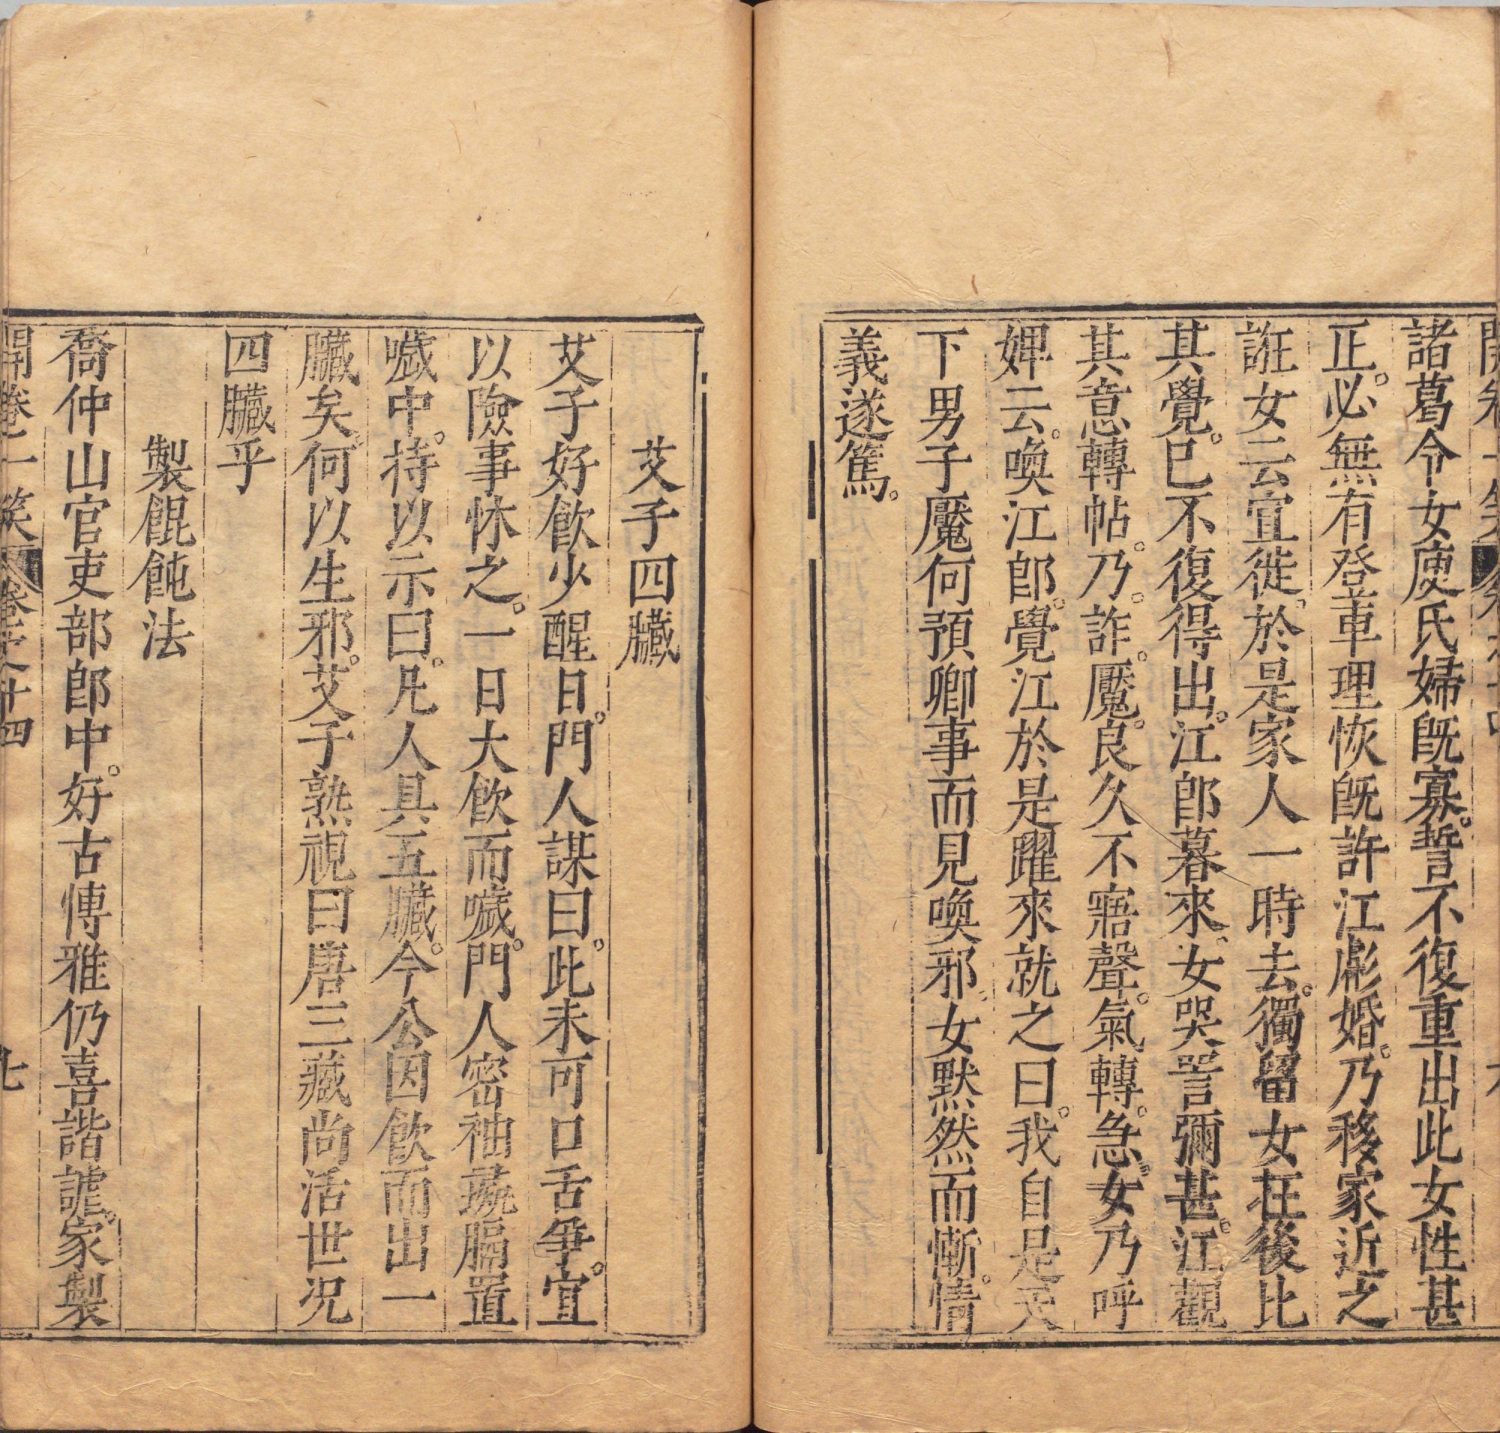 諸葛令女庾氏婦既寡。誓不復重出此女性甚
正。必無有登車理恢既許江彪婚。乃移家近之
誑女云宜徙。於是家人一時去。獨留女在後比
其覺。已不復得出。江郎暮來。女哭詈彌甚。江觀
其意轉帖。乃。詐。魘。良久不寤聲。氣轉。急。女乃呼
婢云。喚江郎。覺江於是躍來就之曰。我自是天
下男子魘何預卿事而見喚邪。女默然而慚。情
義遂篤。
艾子四臟
艾子好飲少醒日。門人謀曰。此未可口舌爭。宜
以險事怵之。一日大飲而噦。門人密袖彘膈置
噦中。持以示曰。凡人具五臟。今公因飲而出一
臟矣。何以生邪。艾子熟視曰唐三藏尚活世况
四臟乎
製餛飩法
喬仲山官吏部郎中。好古博雅仍喜諧謔。家製
開卷一笑 卷之十四 七